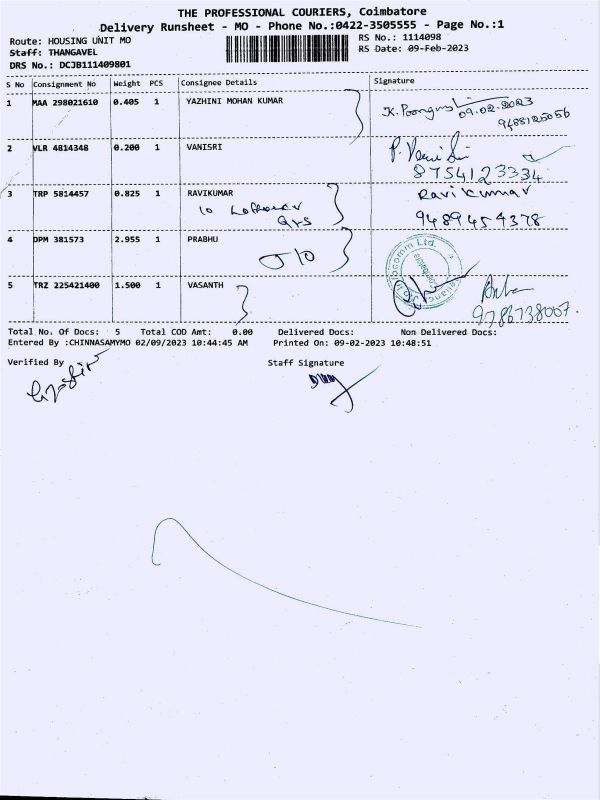 THE PROFESSIONAL COURIERS, Coimbatore
Delivery Runsheet - MO - Phone No.:0422-3505555 - Page No.:1
Route: HOUSING UNIT MO
RS No.: 1114098
Staff: THANGAVEL
RS Date: 09-Feb-2023
DRS No.: DCJB111409801
S No Consignment No Weight PCS Consignee Details Signature
1 MAA 298021610 0.405 1 YAZHINI MOHAN KUMAR
09.02.2023
9488125056
2 VLR 4814348 0.200 1 VANISRI
8754123334
3 TRP 5814457 0.825 1 RAVIKUMAR Ravikumar
10
Qrs 9489454378
4 DPM 381573 2.955 1 PRABHU
5 TRZ 225421400 1.500 1 VASANTH
9786738007.
Total No. Of Docs: 5 Total COD Amt: 0.00 Delivered Docs: Non Delivered Docs:
Entered By :CHINNASAMYMO 02/09/2023 10:44:45 AM Printed On: 09-02-2023 10:48:51
Verified By Staff Signature